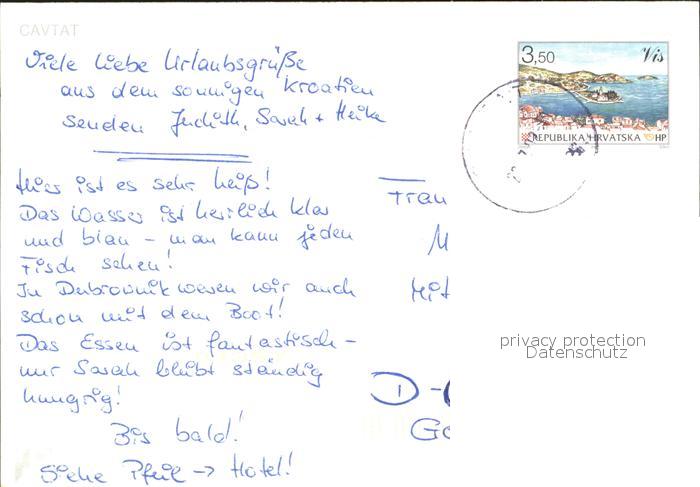 CAVTAT
Viele liebe Urlaubsgrüße
aus dem sonnigen Kroatien
senden Judith, Sarah + Heike
Hier ist es sehr heiß!
Das Wasser ist herrlich klar
und blau - man kann jeden
Fisch sehen!
In Dubrovnik waren wir auch
schon mit dem Boot!
Das Essen ist fantastisch -
nur Sarah bleibt ständig
hungrig!
Bis bald!
Siehe Pfeil → Hotel!
3,50 Vis
REPUBLIKA HRVATSKA HP
Frau
M
Mit
D-
Go
privacy protection
Datenschutz